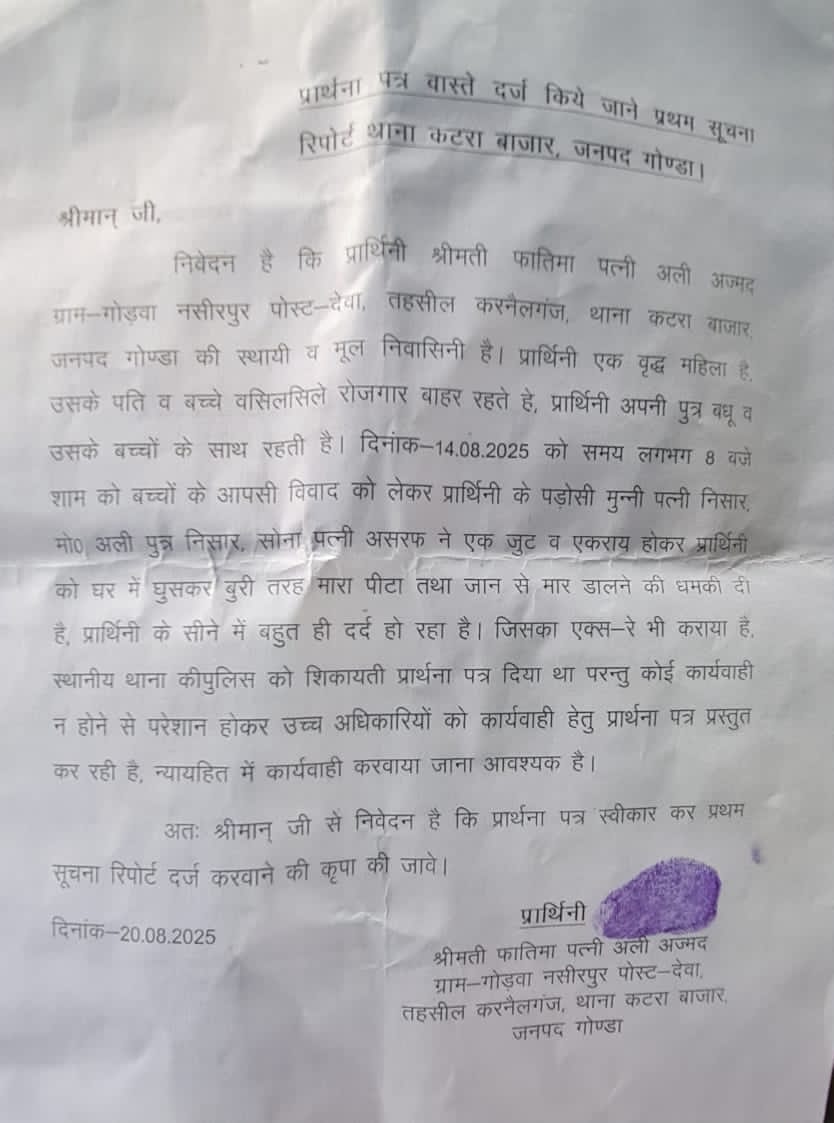 प्रार्थना पत्र वास्ते दर्ज किये जाने प्रथम सूचना
रिपोर्ट थाना कटरा बाजार, जनपद गोण्डा।
श्रीमान् जी,
निवेदन है कि प्रार्थिनी श्रीमती फातिमा पत्नी अली अज्मद
ग्राम–गोड़वा नसीरपुर पोस्ट–देवा, तहसील करनैलगंज, थाना कटरा बाजार,
जनपद गोण्डा की स्थायी व मूल निवासिनी है। प्रार्थिनी एक वृद्ध महिला है,
उसके पति व बच्चे वसिलसिले रोजगार बाहर रहते हे, प्रार्थिनी अपनी पुत्र बधू व
उसके बच्चों के साथ रहती है। दिनांक–14.08.2025 को समय लगभग 8 वजे
शाम को बच्चों के आपसी विवाद को लेकर प्रार्थिनी के पड़ोसी मुन्नी पत्नी निसार,
मो0 अली पुत्र निसार, सोना पत्नी असरफ ने एक जुट व एकराय होकर प्रार्थिनी
को घर में घुसकर बुरी तरह मारा पीटा तथा जान से मार डालने की धमकी दी
है, प्रार्थिनी के सीने में बहुत ही दर्द हो रहा है। जिसका एक्स–रे भी कराया है,
स्थानीय थाना कीपुलिस को शिकायती प्रार्थना पत्र दिया था परन्तु कोई कार्यवाही
न होने से परेशान होकर उच्च अधिकारियों को कार्यवाही हेतु प्रार्थना पत्र प्रस्तुत
कर रही है, न्यायहित में कार्यवाही करवाया जाना आवश्यक है।
अतः श्रीमान् जी से निवेदन है कि प्रार्थना पत्र स्वीकार कर प्रथम
सूचना रिपोर्ट दर्ज करवाने की कृपा की जावे।
प्रार्थिनी
दिनांक–20.08.2025
श्रीमती फातिमा पत्नी अली अज्मद
ग्राम–गोड़वा नसीरपुर पोस्ट–देवा,
तहसील करनैलगंज, थाना कटरा बाजार,
जनपद गोण्डा